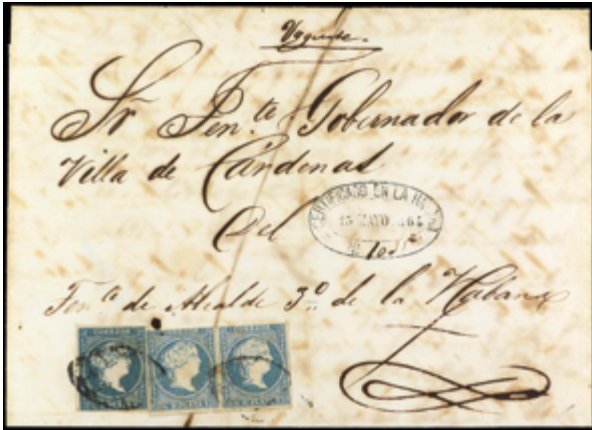 Urgente.
Sr Ten.te Gobernador de la
Villa de Cárdenas
CERTIFICADO EN LA HABANA
15 MAYO
Del
Ten.te de Alcalde 3º de la Habana
CORREOS